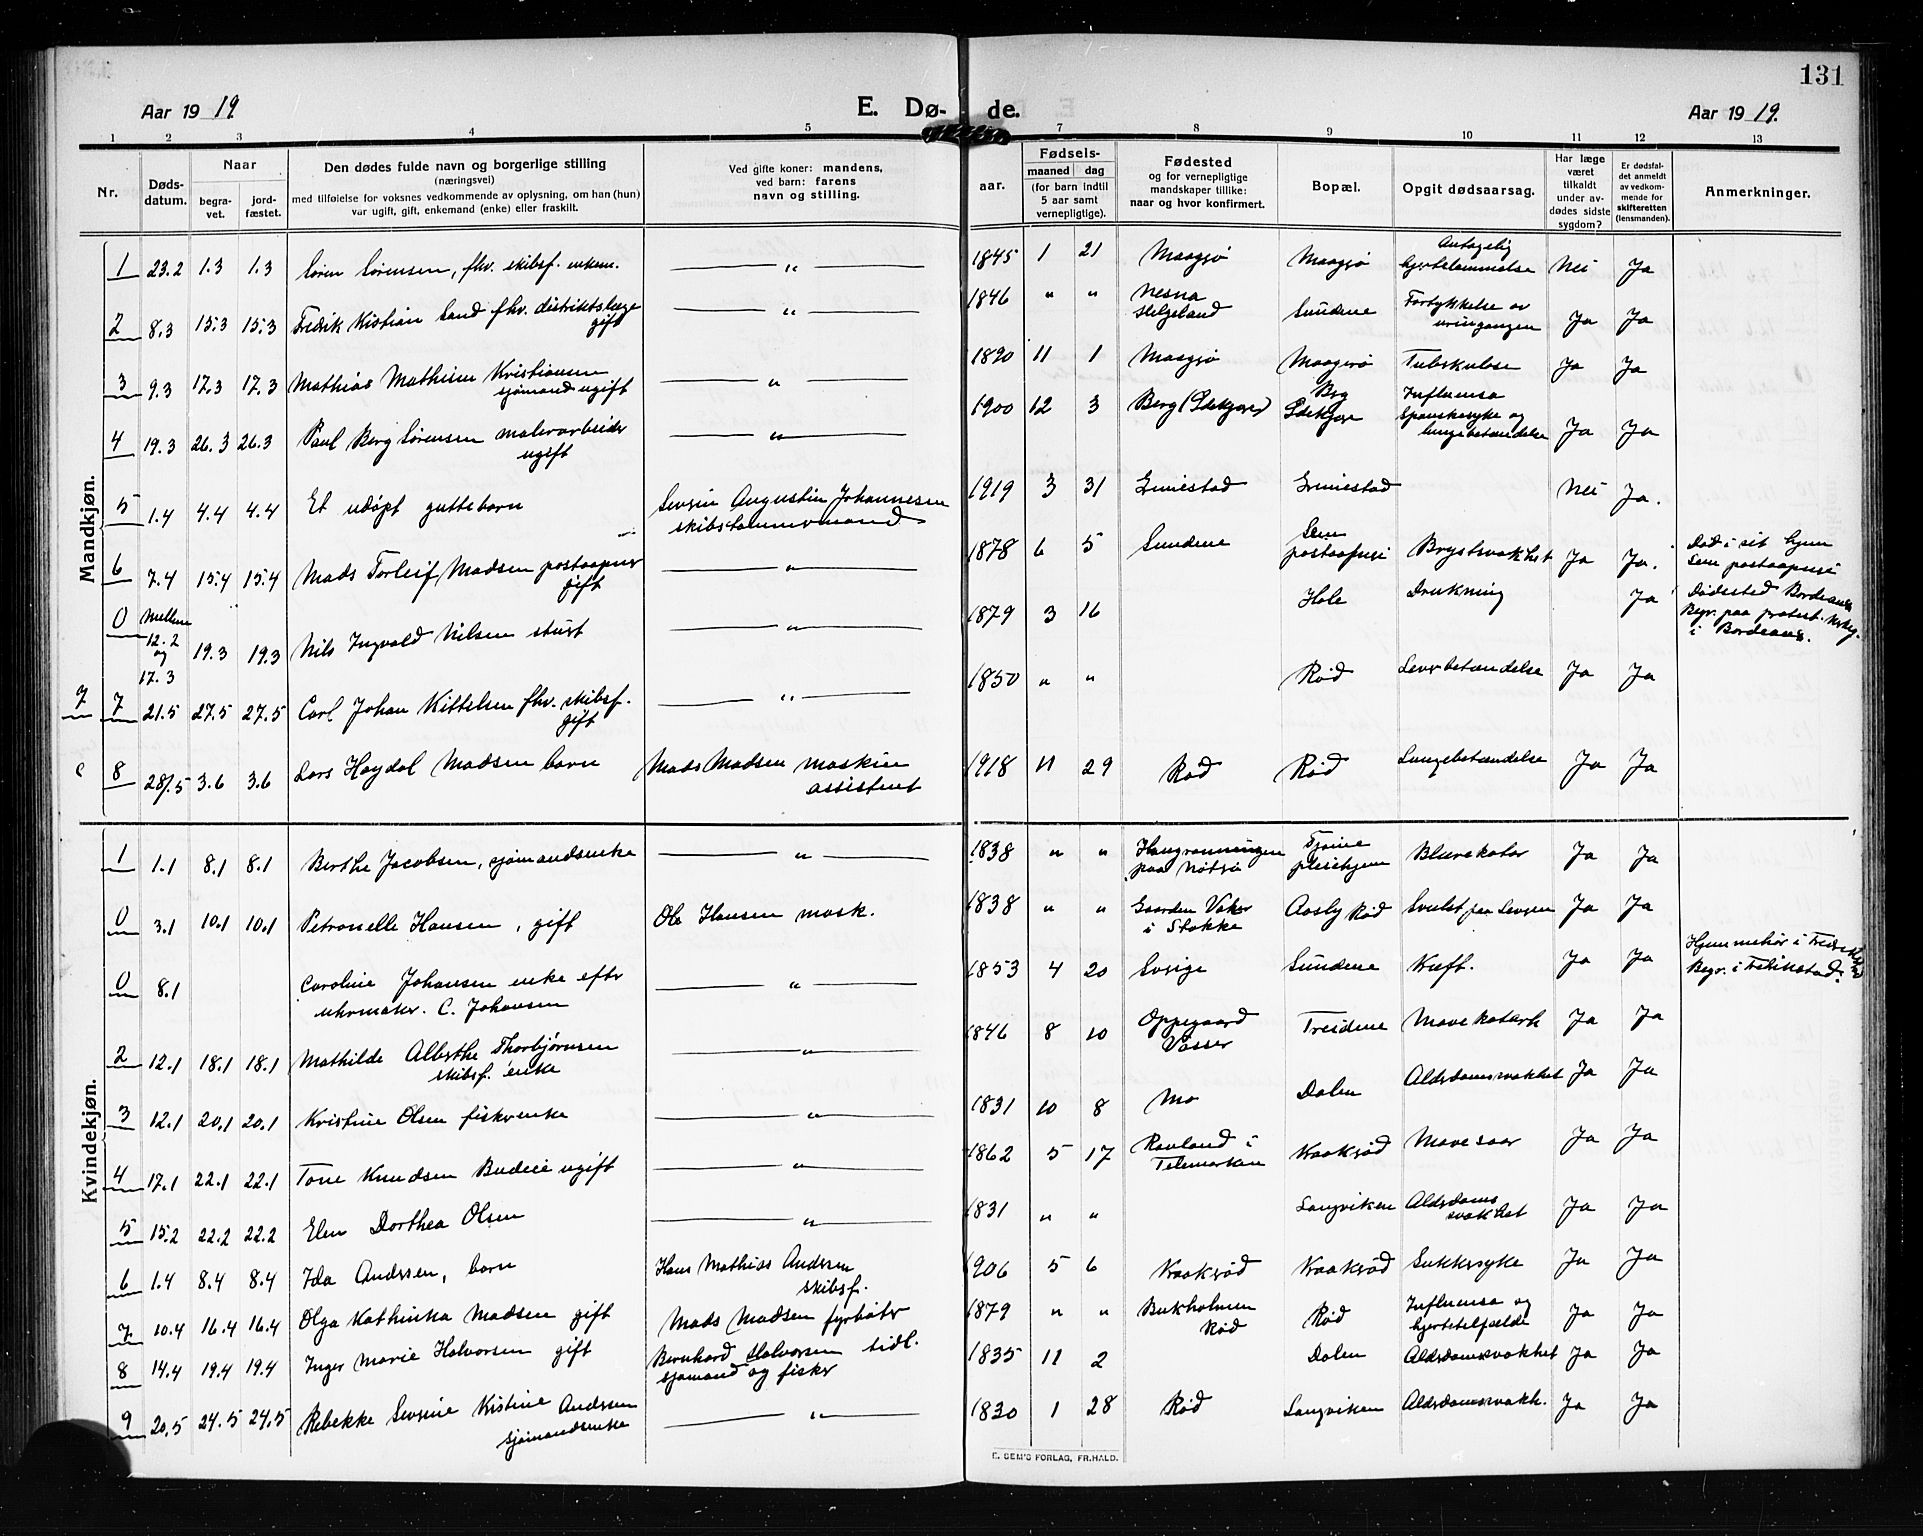 131
Aar 19 19
E. Dø- de.
Aar 19 19.
1 2 3 4 5 7 8 9 10 11 12 13
Nr.
Døds-
datum.
Naar
begra-
vet.
jord-
fæstet.
Den dødes fulde navn og borgerlige stilling
(næringsvei)
med tilføielse for voksnes vedkommende av oplysning, om han (hun)
var ugift, gift, enkemand (enke) eller fraskilt.
Ved gifte koner: mandens,
ved barn: farens
navn og stilling.
aar.
Fødsels-
maaned dag
(for barn indtil
5 aar samt
vernepligtige).
Fødested
og for vernepligtige
mandskaper tillike:
naar og hvor konfirmert.
Bopæl.
Opgit dødsaarsag.
Har læge
været
tilkaldt
under av-
dødes sidste
sygdom?
Er dødsfal-
det anmeldt
av vedkom-
mende for
skifteretten
(lensmanden).
Anmerkninger.
Mandkjøn.
1 23.2 1.3 1.3 Søren Sørensen, fhv. skibsf. enkem. — " — 1845 1 21 Maagerø Maagerø Antagelig
hjertelammelse Nei Ja
2 8.3 15.3 15.3 Fredrik Kristian Sand fhv. distriktslæge
gift — " — 1846 " " Nesna
Helgeland Sundene Fortykkelse av
uringangen Ja Ja
3 9.3 17.3 17.3 Mathias Mathisen Kristiansen
sjømand ugift — " — 1890 11 1 Maagerø Maagerø Tuberkulose Ja Ja
4 19.3 26.3 26.3 Paul Berg Sørensen malerarbeider
ugift — " — 1900 12 3 Berg (Sdekjær) Berg
Sdekjær Influensa
Spanskesyke og
lungebetændelse Ja Ja
5 1.4 4.4 4.4 Et udøpt guttebarn Severin Augustin Johannesen
skibstømmermand 1919 3 31 Grimestad Grimestad Nei Ja.
6 7.4 15.4 15.4 Mads Torleif Madsen postaapner
gift — " — 1878 6 5 Sundene Sem
postaapneri Brystsvakhet Ja Ja. Død i sit hjem
Sem postaapneri
0 Mellem
12.2
og
17.3 19.3 19.3 Nils Ingvald Nilsen stuert — " — 1879 3 16 Hole Drukning Ja Dødssted Bordeaux
Begr. paa protest. kirkeg.
i Bordeaux.
7 7 21.5 27.5 27.5 Carl Johan Kittelsen fhv. skibsf.
gift — " — 1850 " " Rød Leverbetændelse Ja Ja
8 28/.5 3.6 3.6 Lars Høydal Madsen barn Mads Madsen maskin
assistent 1918 11 29 Rød Rød Lungebetændelse Ja Ja
Kvindekjøn.
1 1.1 8.1 8.1 Berthe Jacobsen, sjømandsenke — " — 1838 " " Haugrønningen
paa Nøtterø Tjøme
pleiehjem Blærekatar Ja Ja
0 3.1 10.1 10.1 Petronelle Hansen, gift Ole Hansen mask. 1838 " " Gaarden Vaker
i Stokke Aasly Rød Svulst paa Leveren Ja Ja
0 8.1 Caroline Johansen enke efter
uhrmaker. C. Johansen — " — 1853 4 20 Sverige Sundene Kræft. Ja Ja Hjemmehør i Fredrikstad
Begr. i Fredrikstad.
2 12.1 18.1 18.1 Mathilde Alberthe Thorbjørnsen
skibsf. enke — " — 1846 8 10 Oppegaard
Vasser Treidene Mavekatarh Ja Ja
3 12.1 20.1 20.1 Kristine Olsen fiskerenke — " — 1831 10 8 Mo Dalen Alderdomssvakhet Ja Ja
4 17.1 22.1 22.1 Tone Knudsen Budeie ugift — " — 1862 5 17 Rauland i
Telemarken Kraakerød Mavesaar Ja Ja
5 15.2 22.2 22.2 Elen Dorthea Olsen — " — 1831 " " Langviken Alderdoms
svakhet Ja Ja
6 1.4 8.4 8.4 Ida Andersen, barn Hans Mathias Andersen
skibsf. 1906 5 6 Kraakerød Kraakerød Sukkersyke Ja Ja
7 10.4 16.4 16.4 Olga Kathinka Madsen gift Mads Madsen fyrbøter 1879 " " Bukholmen
Rød Rød Influensa og
hjertetilfælde Ja Ja
8 14.4 19.4 19.4 Inger Marie Halvorsen gift Bernhard Halvorsen tidl.
sjømand og fisker 1835 11 2 Dalen Alderdomssvakhet Ja Ja
9 20.5 24.5 24.5 Rebekke Severine Kristine Andersen
sjømandsenke — " — 1830 1 28 Rød Langviken Alderdomssvakh. Ja Ja
E. SEM'S FORLAG, FR.HALD.